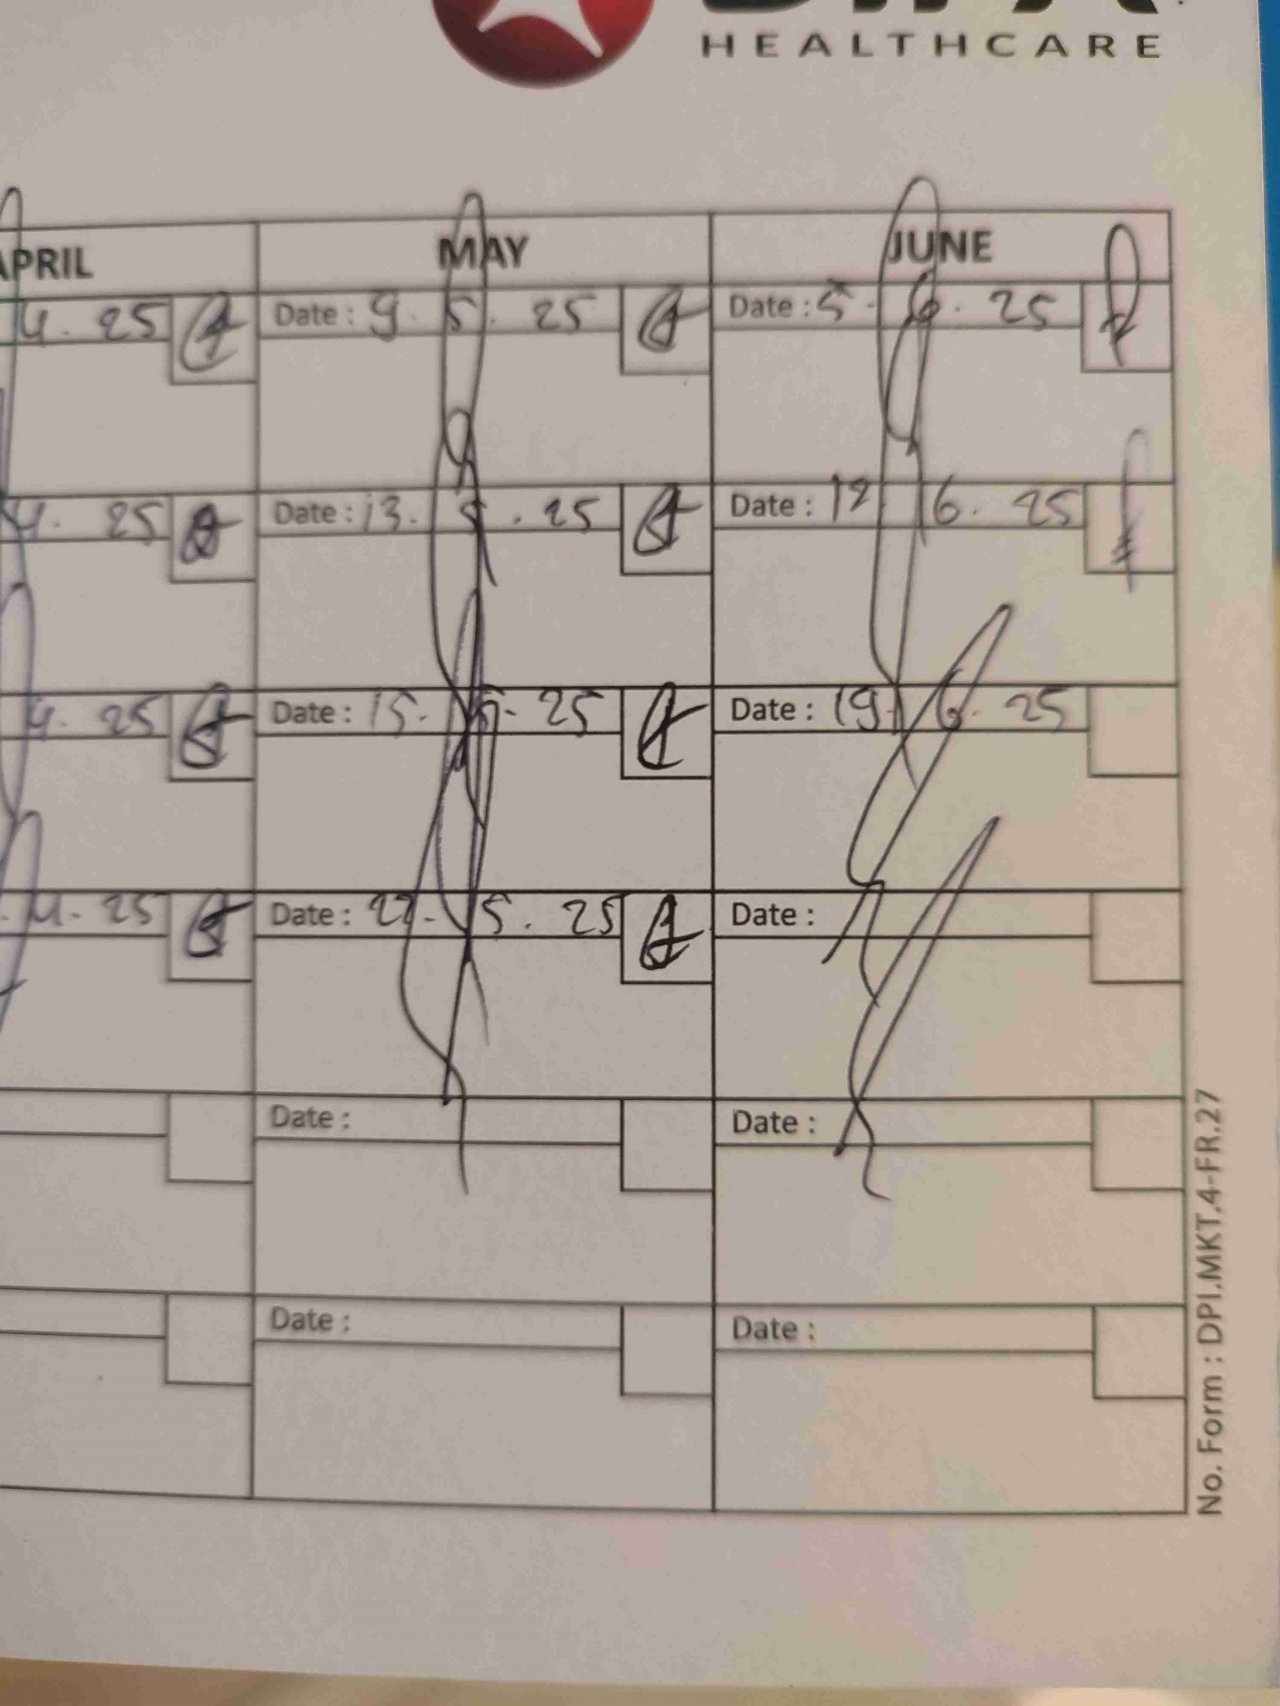 HEALTHCARE
APRIL MAY JUNE
4. 25 Date : 9. 5. 25 Date : 5. 6. 25
4. 25 Date : 13. 5. 25 Date : 12 6. 25
4. 25 Date : 15. 5. 25 Date : 19. 6. 25
4. 25 Date : 22. 5. 25 Date :
Date : Date :
Date : Date :
No. Form : DPI.MKT.4-FR.27